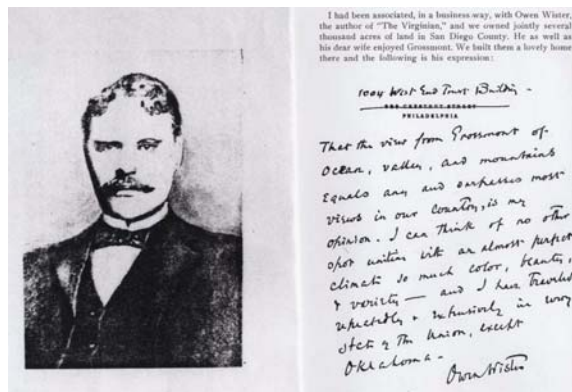 I had been associated, in a business way, with Owen Wister,
the author of "The Virginian," and we owned jointly several
thousand acres of land in San Diego County. He as well as
his dear wife enjoyed Grossmont. We built them a lovely home
there and the following is his expression:
1004 West End Trust Building -
CHESTNUT STREET
PHILADELPHIA
That the view from Grossmont of
Ocean, valley, and mountains
Equals any and surpasses most
views in our country, is my
opinion. I can think of no other
spot uniting with an almost perfect
climate so much color, beauty,
& variety — and I have traveled
repeatedly & extensively in every
state of the Union, except
Oklahoma -
Owen Wister